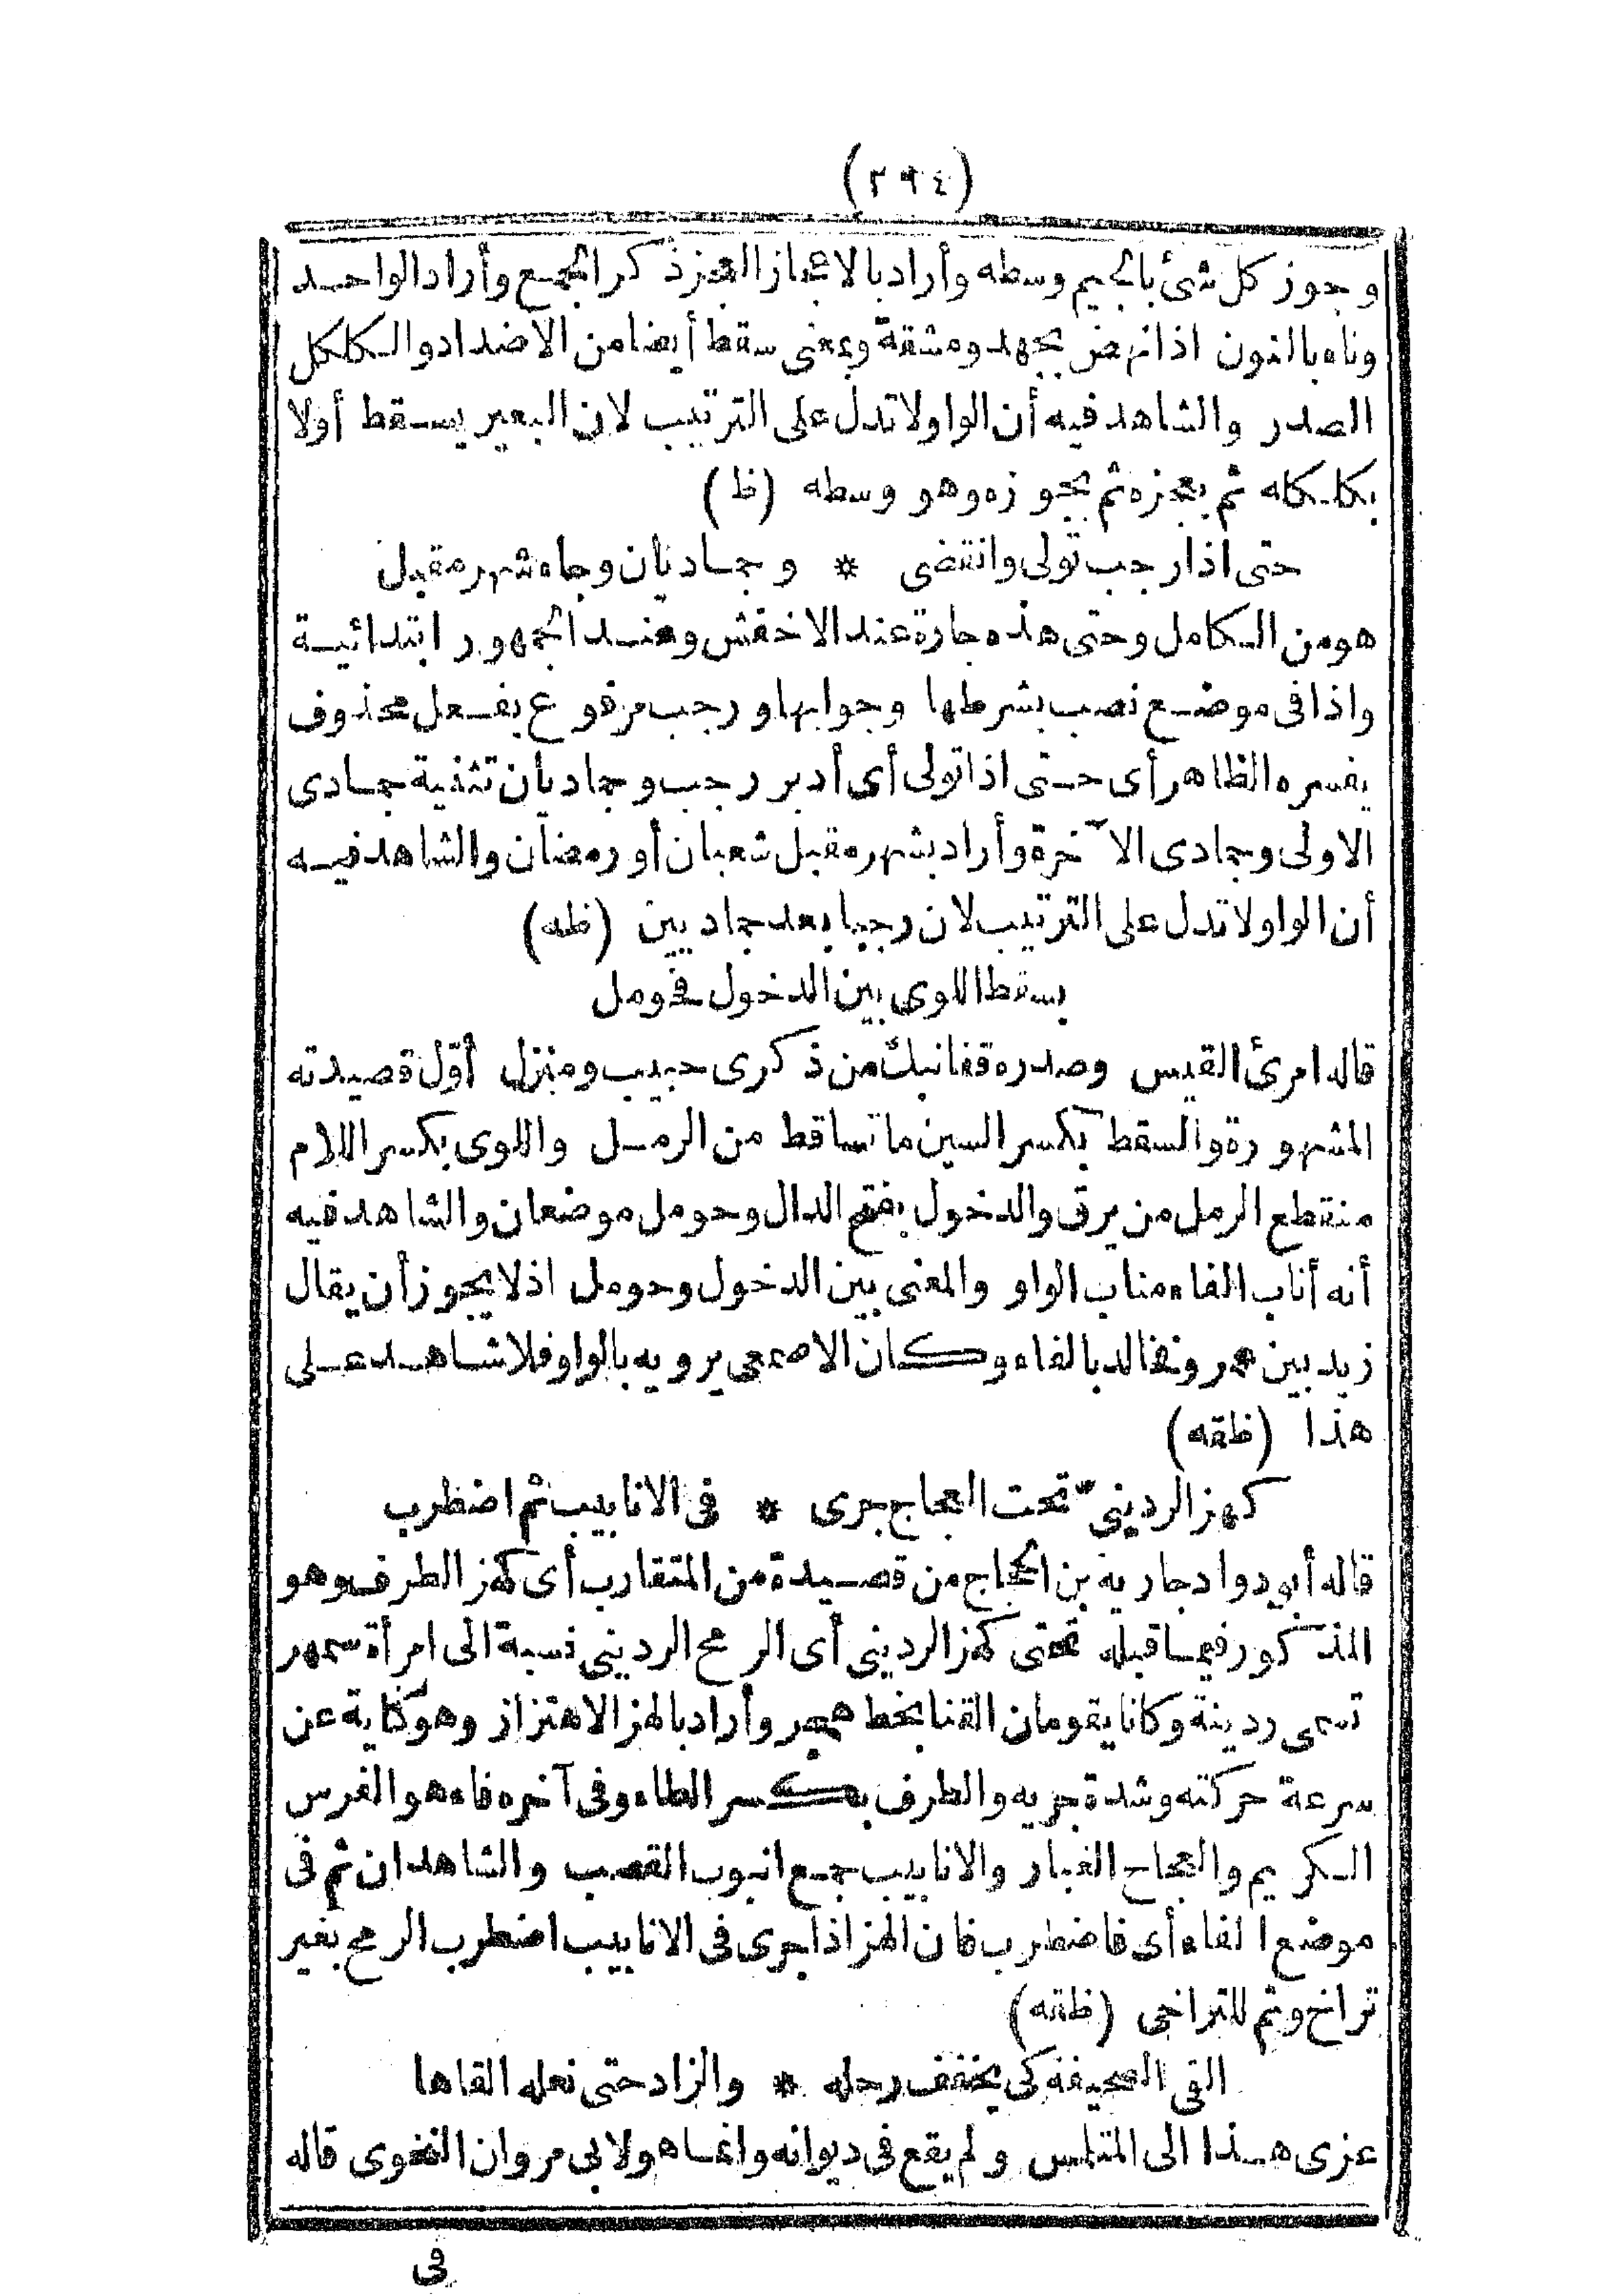 (٢٩٤)
وجوز كل شئ بالجيم وسطه وأراد بالاعجاز العجز ذكر الجمع وأراد الواحد
وناء بالنون اذا نهض بجهد ومشقة وبمعنى سقط أيضا من الاضداد والكلكل
الصدر والشاهد فيه أن الواو لا تدل على الترتيب لان البعير يسقط أولا
بكلكله ثم بعجزه ثم بجوزه وهو وسطه (ظ)
حتى اذا رجب تولى وانقضى * وجماديان وجاء شهر مقبل
هو من الكامل وحتى هذه جارة عند الاخفش وعند الجمهور ابتدائية
واذا فى موضع نصب بشرطها وجوابها ورجب مرفوع بفعل محذوف
يفسره الظاهر أى حتى اذا تولى أى أدبر رجب وجماديان تثنية جمادى
الاولى وجمادى الآخرة وأراد بشهر مقبل شعبان أو رمضان والشاهد فيه
أن الواو لا تدل على الترتيب لان رجبا بعد جماديين (ظه)
بسقط اللوى بين الدخول فحومل
قاله امرئ القيس وصدره قفا نبك من ذكرى حبيب ومنزل أوّل قصيدته
المشهورة والسقط بكسر السين ما تساقط من الرمل واللوى بكسر اللام
منقطع الرمل من يرق والدخول بفتح الدال وحومل موضعان والشاهد فيه
أنه أناب الفاء مناب الواو والمعنى بين الدخول وحومل اذ لا يجوز أن يقال
زيد بين عمرو فخالد بالفاء وكان الاصمعى يرويه بالواو فلا شاهد على
هذا (ظقه)
كهز الردينىّ تحت العجاج جرى * فى الانابيب ثم اضطرب
قاله أبو دواد جارية بن الحجاج من قصيدة من المتقارب أى كهز الطرف وهو
المذكور فيما قبله تحتى كهز الردينى أى الرمح الردينى نسبة الى امرأة سمهر
تسمى ردينة وكانا يقومان القنا بخط هجر وأراد بالهز الاهتزاز وهو كناية عن
سرعة حركته وشدة جريه والطرف بكسر الطاء وفى آخره فاء هو الفرس
الكريم والعجاج الغبار والانابيب جمع انبوب القصب والشاهد ان ثم فى
موضع الفاء أى فاضطرب فان الهز اذا جرى فى الانابيب اضطرب الرمح بغير
تراخ وثم للتراخى (ظقه)
القى الصحيفة كى يخفف رحله * والزاد حتى نعله القاها
عزى هذا الى المتلمس ولم يقع فى ديوانه وانما هو لابى مروان النحوى قاله
فى